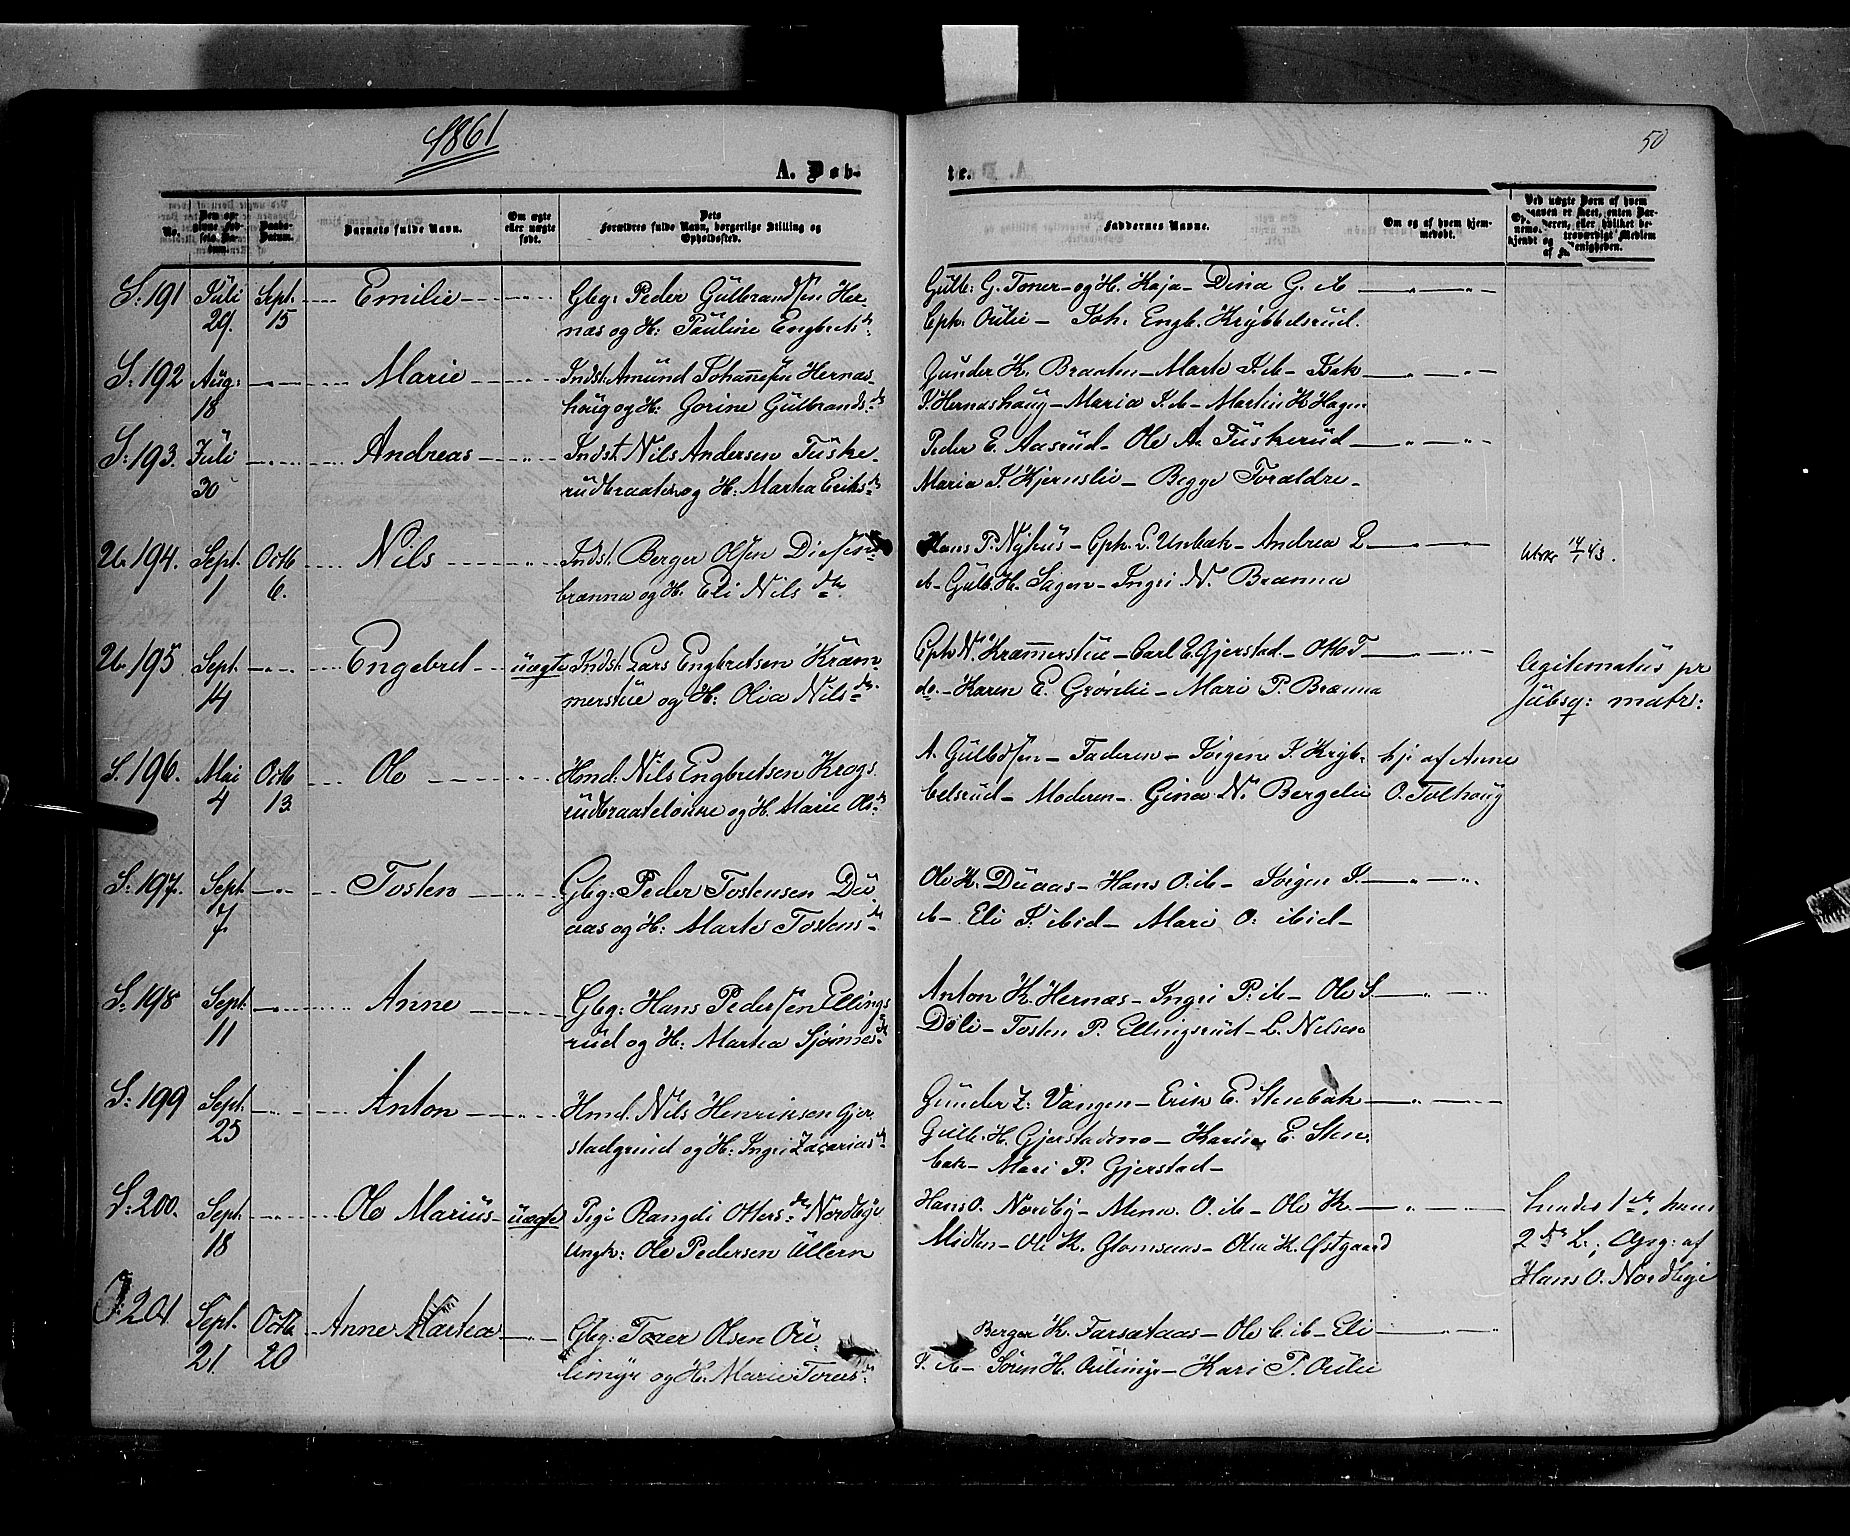 1861
50
A. Døb-
te.
No.
Barnets fulde Navn.
Om ægte eller uægte født.
Forældres fulde Navn, borgerlige Stilling og Opholdssted.
Faddernes Navne.
Om og af hvem hjemmedøbt.
S: 191 Juli 29. Sept. 15 Emilie
Gbg: Peder Gulbrandsen Her-
næs og H: Pauline Engbretsdr.
Gulb: G. Toner og H. Kaja - Dina G. ib
Cph. Oulie - Joh. Engb. Krybbelsrud.
S: 192 Aug: 18 Marie
Indst. Amund Johannesen Hernæs-
houg og H: Gorine Gulbrandsdr.
Gunder H. Braaten - Marte J. ib - Isak
J. Hernæshaug - Maria J. ib - Martin H. Hagen
S: 193. Juli 30 Andreas
Indst. Nils Andersen Tuske-
rudbraaten og H: Martea Eriksdr.
Peder E. Aasrud - Ole A. Tuskerud
Maria J. Kjernslie - Begge Forældre -
Ub. 194. Sept. 1 Octb 6. Nils
Indst. Berger Olsen Diesen-
brænna og H. Eli Nilsdr.
Hans P. Nyhus - Cph. L. Ulvbak - Andrea L
ib - Gulb. H. Sagen - Ingri N. Brænna
Ub. 195 Sept. 14 Engebret uægte
Indst. Lars Engbretsen Kræm-
merstue og H: Olia Nilsdr.
Cph. N. Kræmmerstue - Carl E. Gjerstad - Otto T
do - Karen E. Grønlie - Mari P. Brænna
legitimatus pr
subsq: matr:
S. 196. Mai 4 Octb 13. Ole
Hmd. Nils Engbretsen Krogs
rudbraateløkke og H. Marie Olsdr.
A. Gulbdsen - Faderen - Jørgen J. Kryb-
belsrud - Moderen - Gina N. Bergelie
hj. af Anne
O. Tolhoug
S: 197. Sept. 7 Tosten
Gbg: Peder Tostensen Du-
aas og H: Marte Tostensdr.
Ole K. Duaas - Hans O. ib - Jørgen P.
ib - Eli P. ibid - Mari O: ibid -
S: 198 Sept. 11 Anne
Gbg: Hans Pedersen Ellings
rud og H: Martea Sjønnesdr.
Anton K. Hernæs - Ingri P. ib - Ole S
Døli - Tosten P. Ellingsrud - L. Nilsen
S: 199 Sept. 25 Anton
Hmd. Nils Henriksen Gjer
stadgrind og H: Ingri Zacariasdr.
Gunder Z. Vangen - Erik E. Stenbak
Gulb. H. Gjerstadmo - Karen E. Sten-
bak - Mari P. Gjerstad -
S: 200. Sept. 18 Ole Marius uægte
Pige Rangdi Ottersdr. Nordbye
Ungk: Ole Pedersen Ullern
Hans O. Nordby - Mina O. ib - Ole K.
Midten - Ole K. Glomsaas - Olea K. Østgaard
hendes 1ste, hans
2det L.; Opg: af
Hans O. Nordbye
S: 201 Sept. 21. Octb 20 Anne Martea
Gbg: Torer Olsen Ou-
liemyr og H. Marie Torersdr.
Berger K. Farsætaas - Ole C. ib - Eli
P. ib - Søren H. Oulimyr - Kari P. Oulie